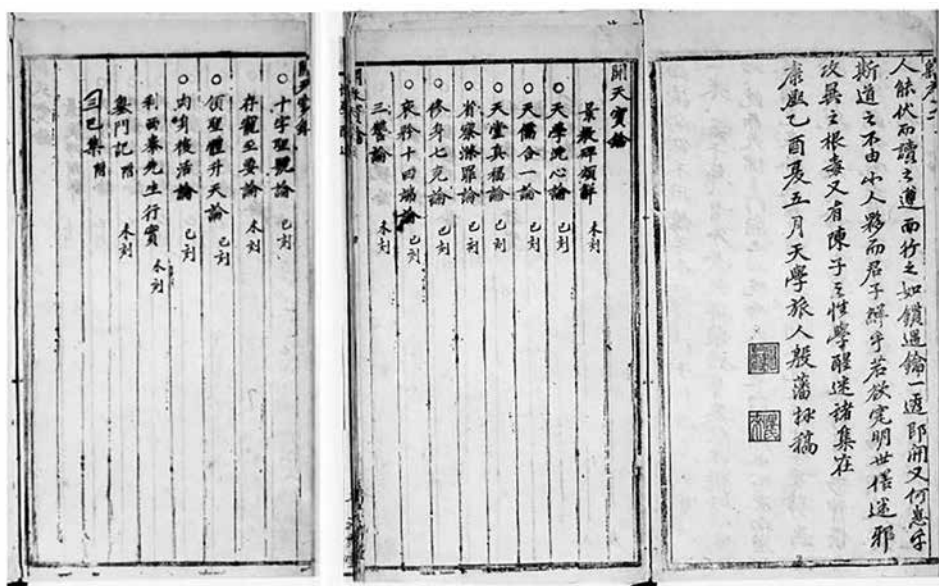 人能伏而讀之遵而行之如鎖遇鑰一透即開又何患乎
斯道之不由小人夥而君子鮮乎若欲究明世俗迷邪
攻異之根毒又有陳子三性學醒迷諸集在
康熙乙酉夏五月天學旅人殷藩 稿
開天寶鑰
景教碑頌解 未刻
○天學洗心論 已刻
○天儒合一論 已刻
○天堂真福論 已刻
○省察滌罪論 已刻
○修身七克論 已刻
○哀矜十四端論 已刻
三讐論 未刻
○十字聖號論 已刻
存寵至要論 未刻
○領聖體升天論 已刻
○肉身復活論 已刻
利西泰先生行實 未刻
婺門記附 未刻
三巴集附